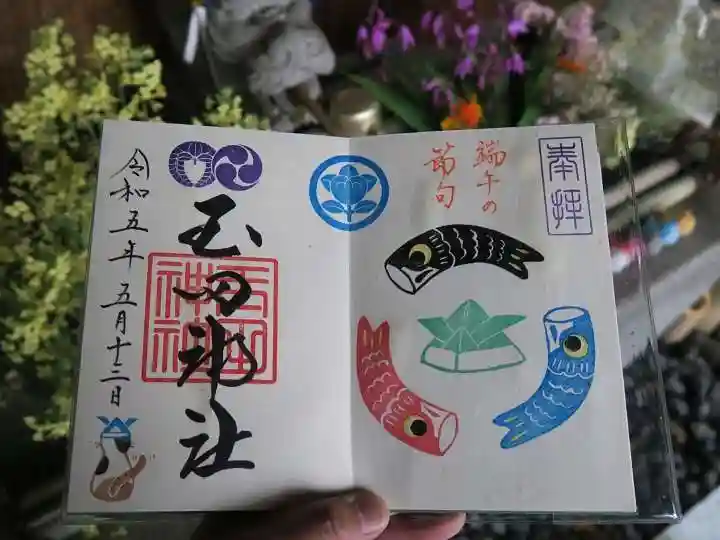 奉拝
端午の
節句
玉田神社
玉田
神社
令和五年五月十二日